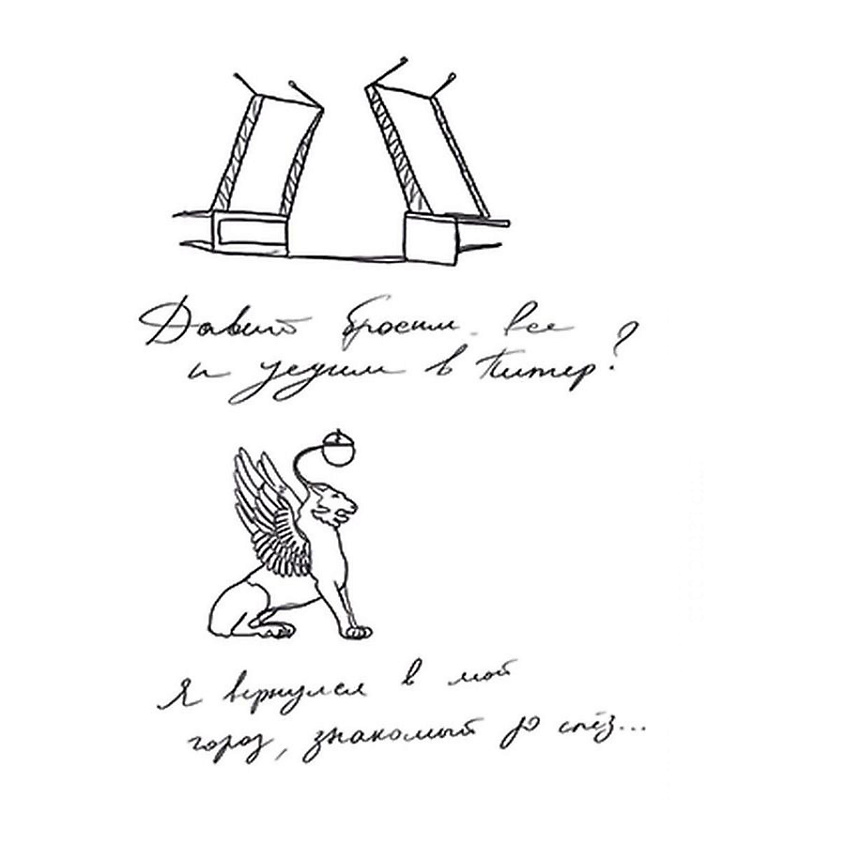 Давай бросим все
и уедим в Питер?
Я вернулся в мой
город, знакомый до слёз...